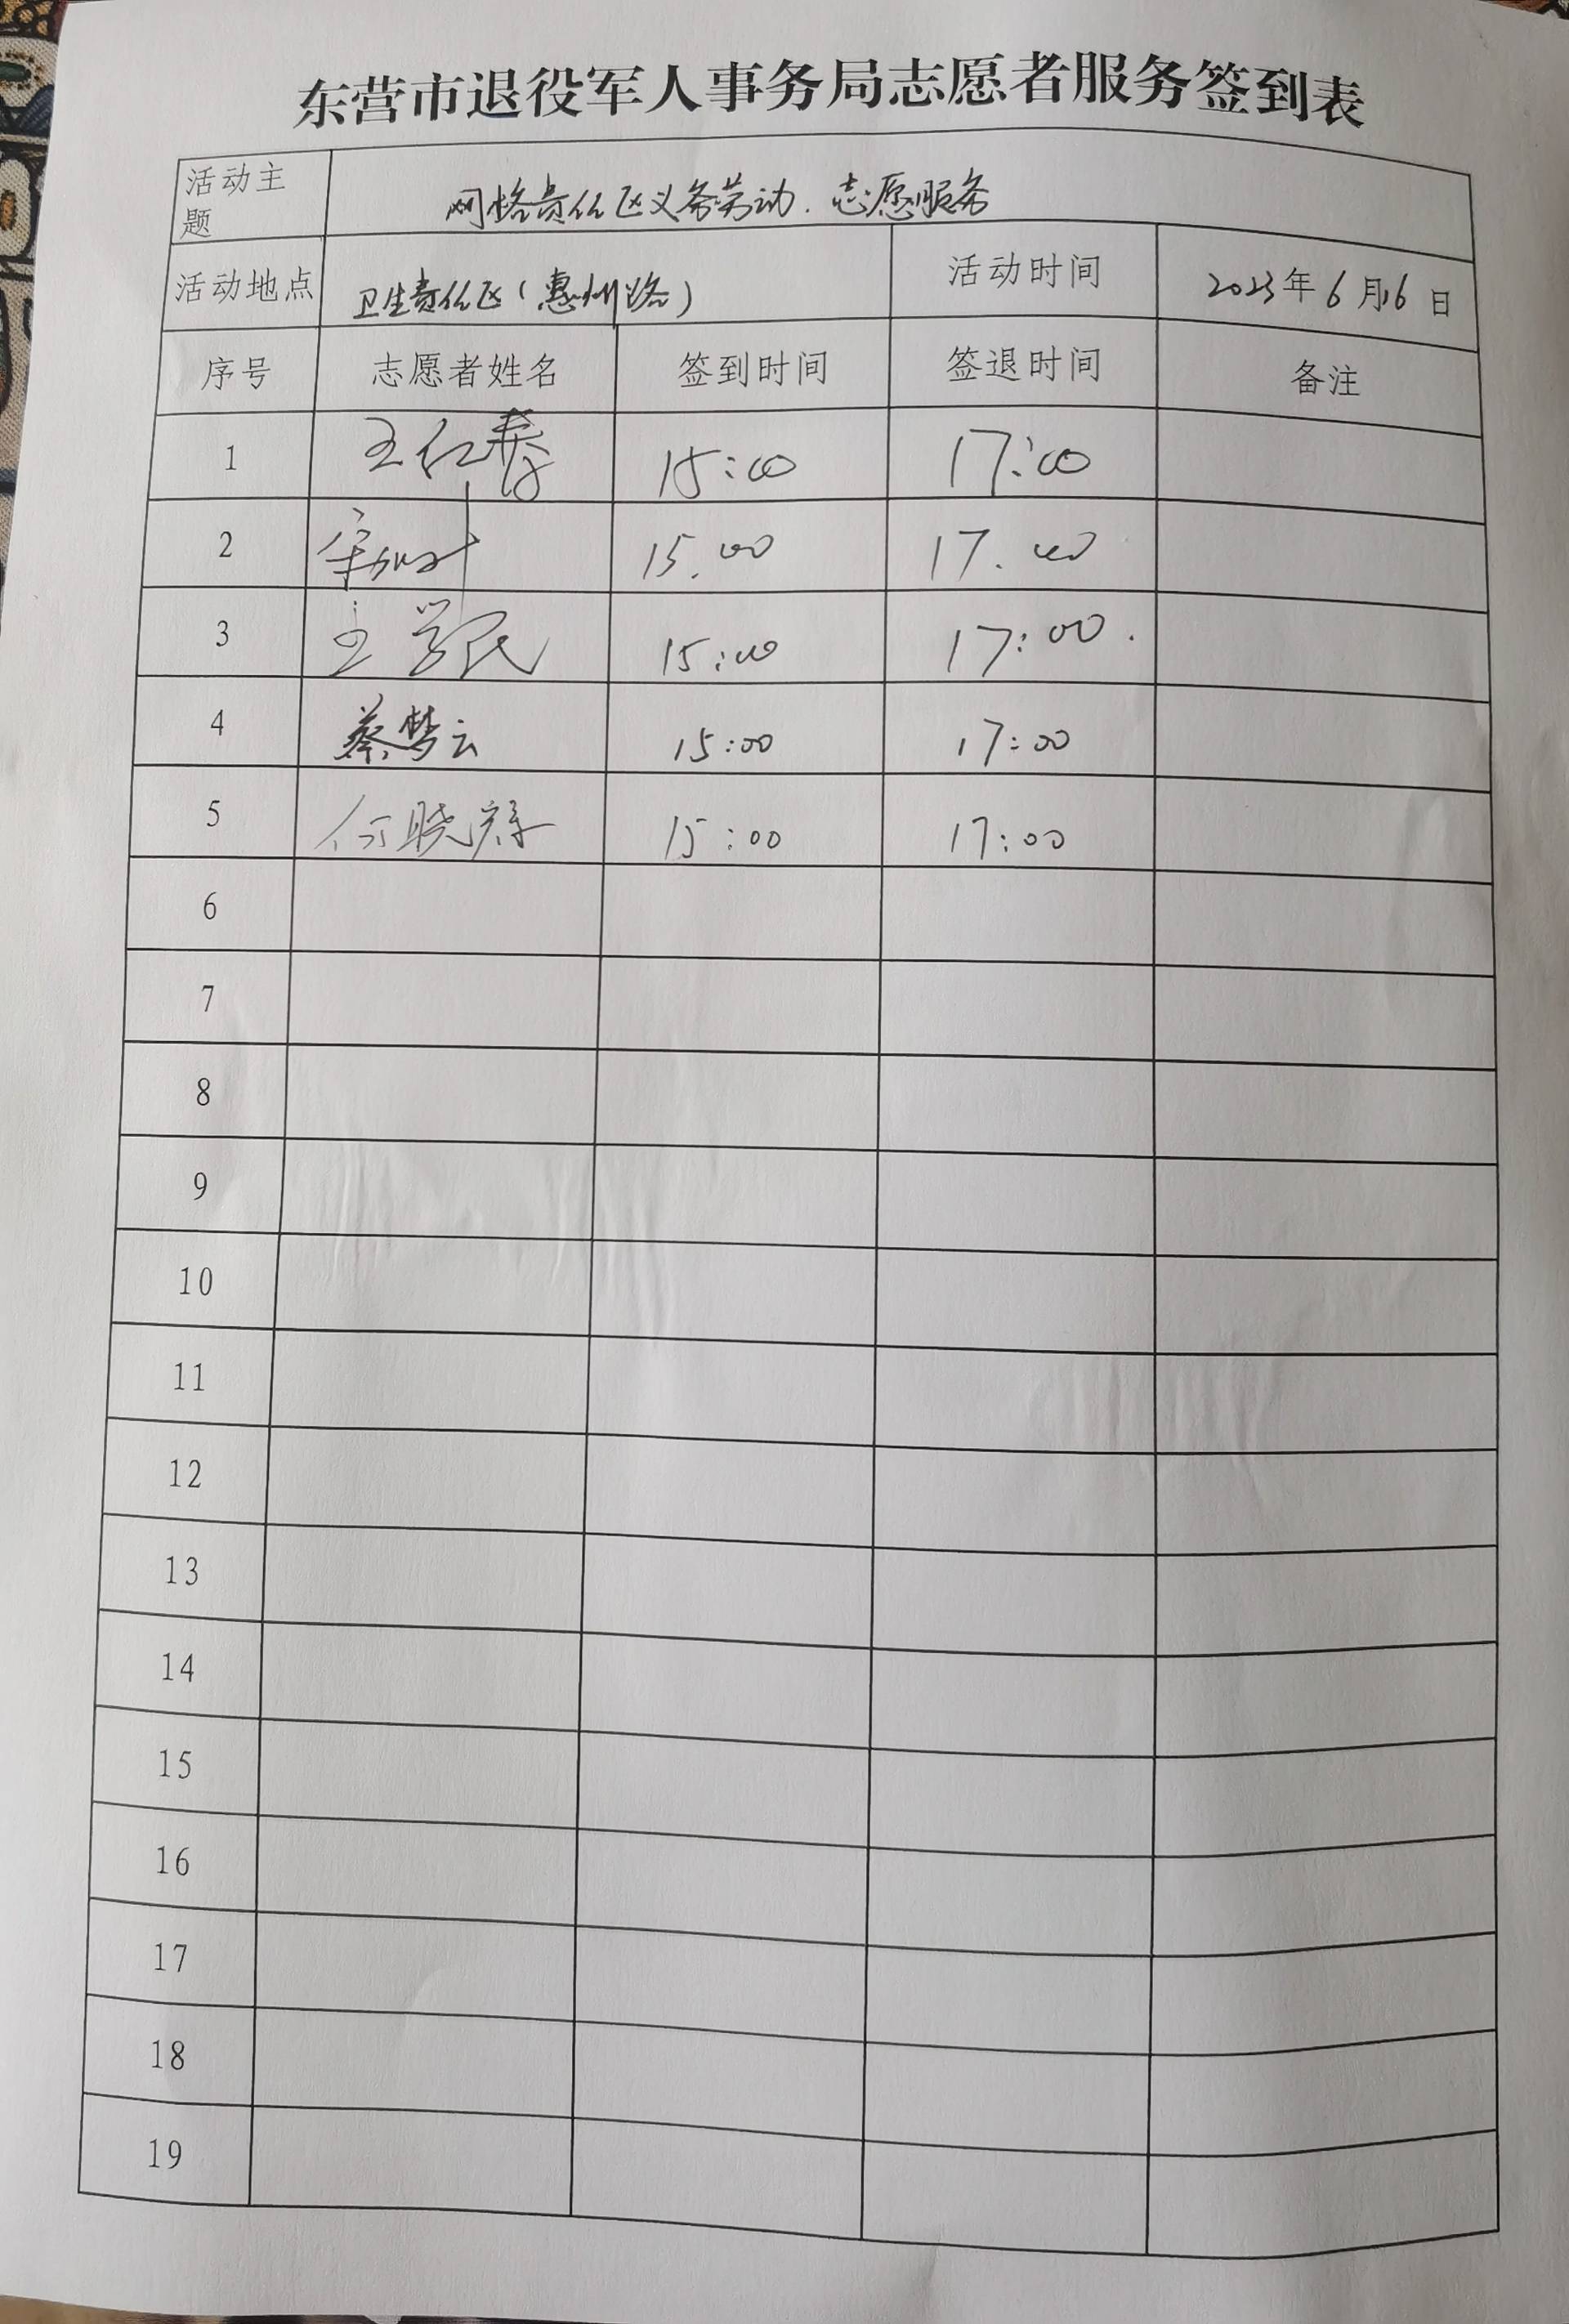 东营市退役军人事务局志愿者服务签到表
活动主题 网格责任区义务劳动.志愿服务
活动地点 卫生责任区(惠州路) 活动时间 2023年6月16日
序号 志愿者姓名 签到时间 签退时间 备注
1 王仁 15:00 17:00
2 15.00 17.00
3 王学民 15:00 17:00.
4 蔡梦云 15:00 17:00
5 何晓 15:00 17:00
6
7
8
9
10
11
12
13
14
15
16
17
18
19